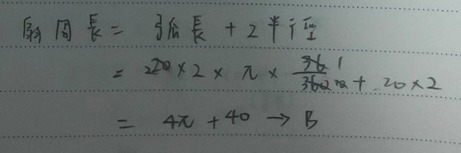 扇周長 = 弧長 + 2半徑
= 20 × 2 × π × 36/360 + 20 × 2
= 4π + 40 → B